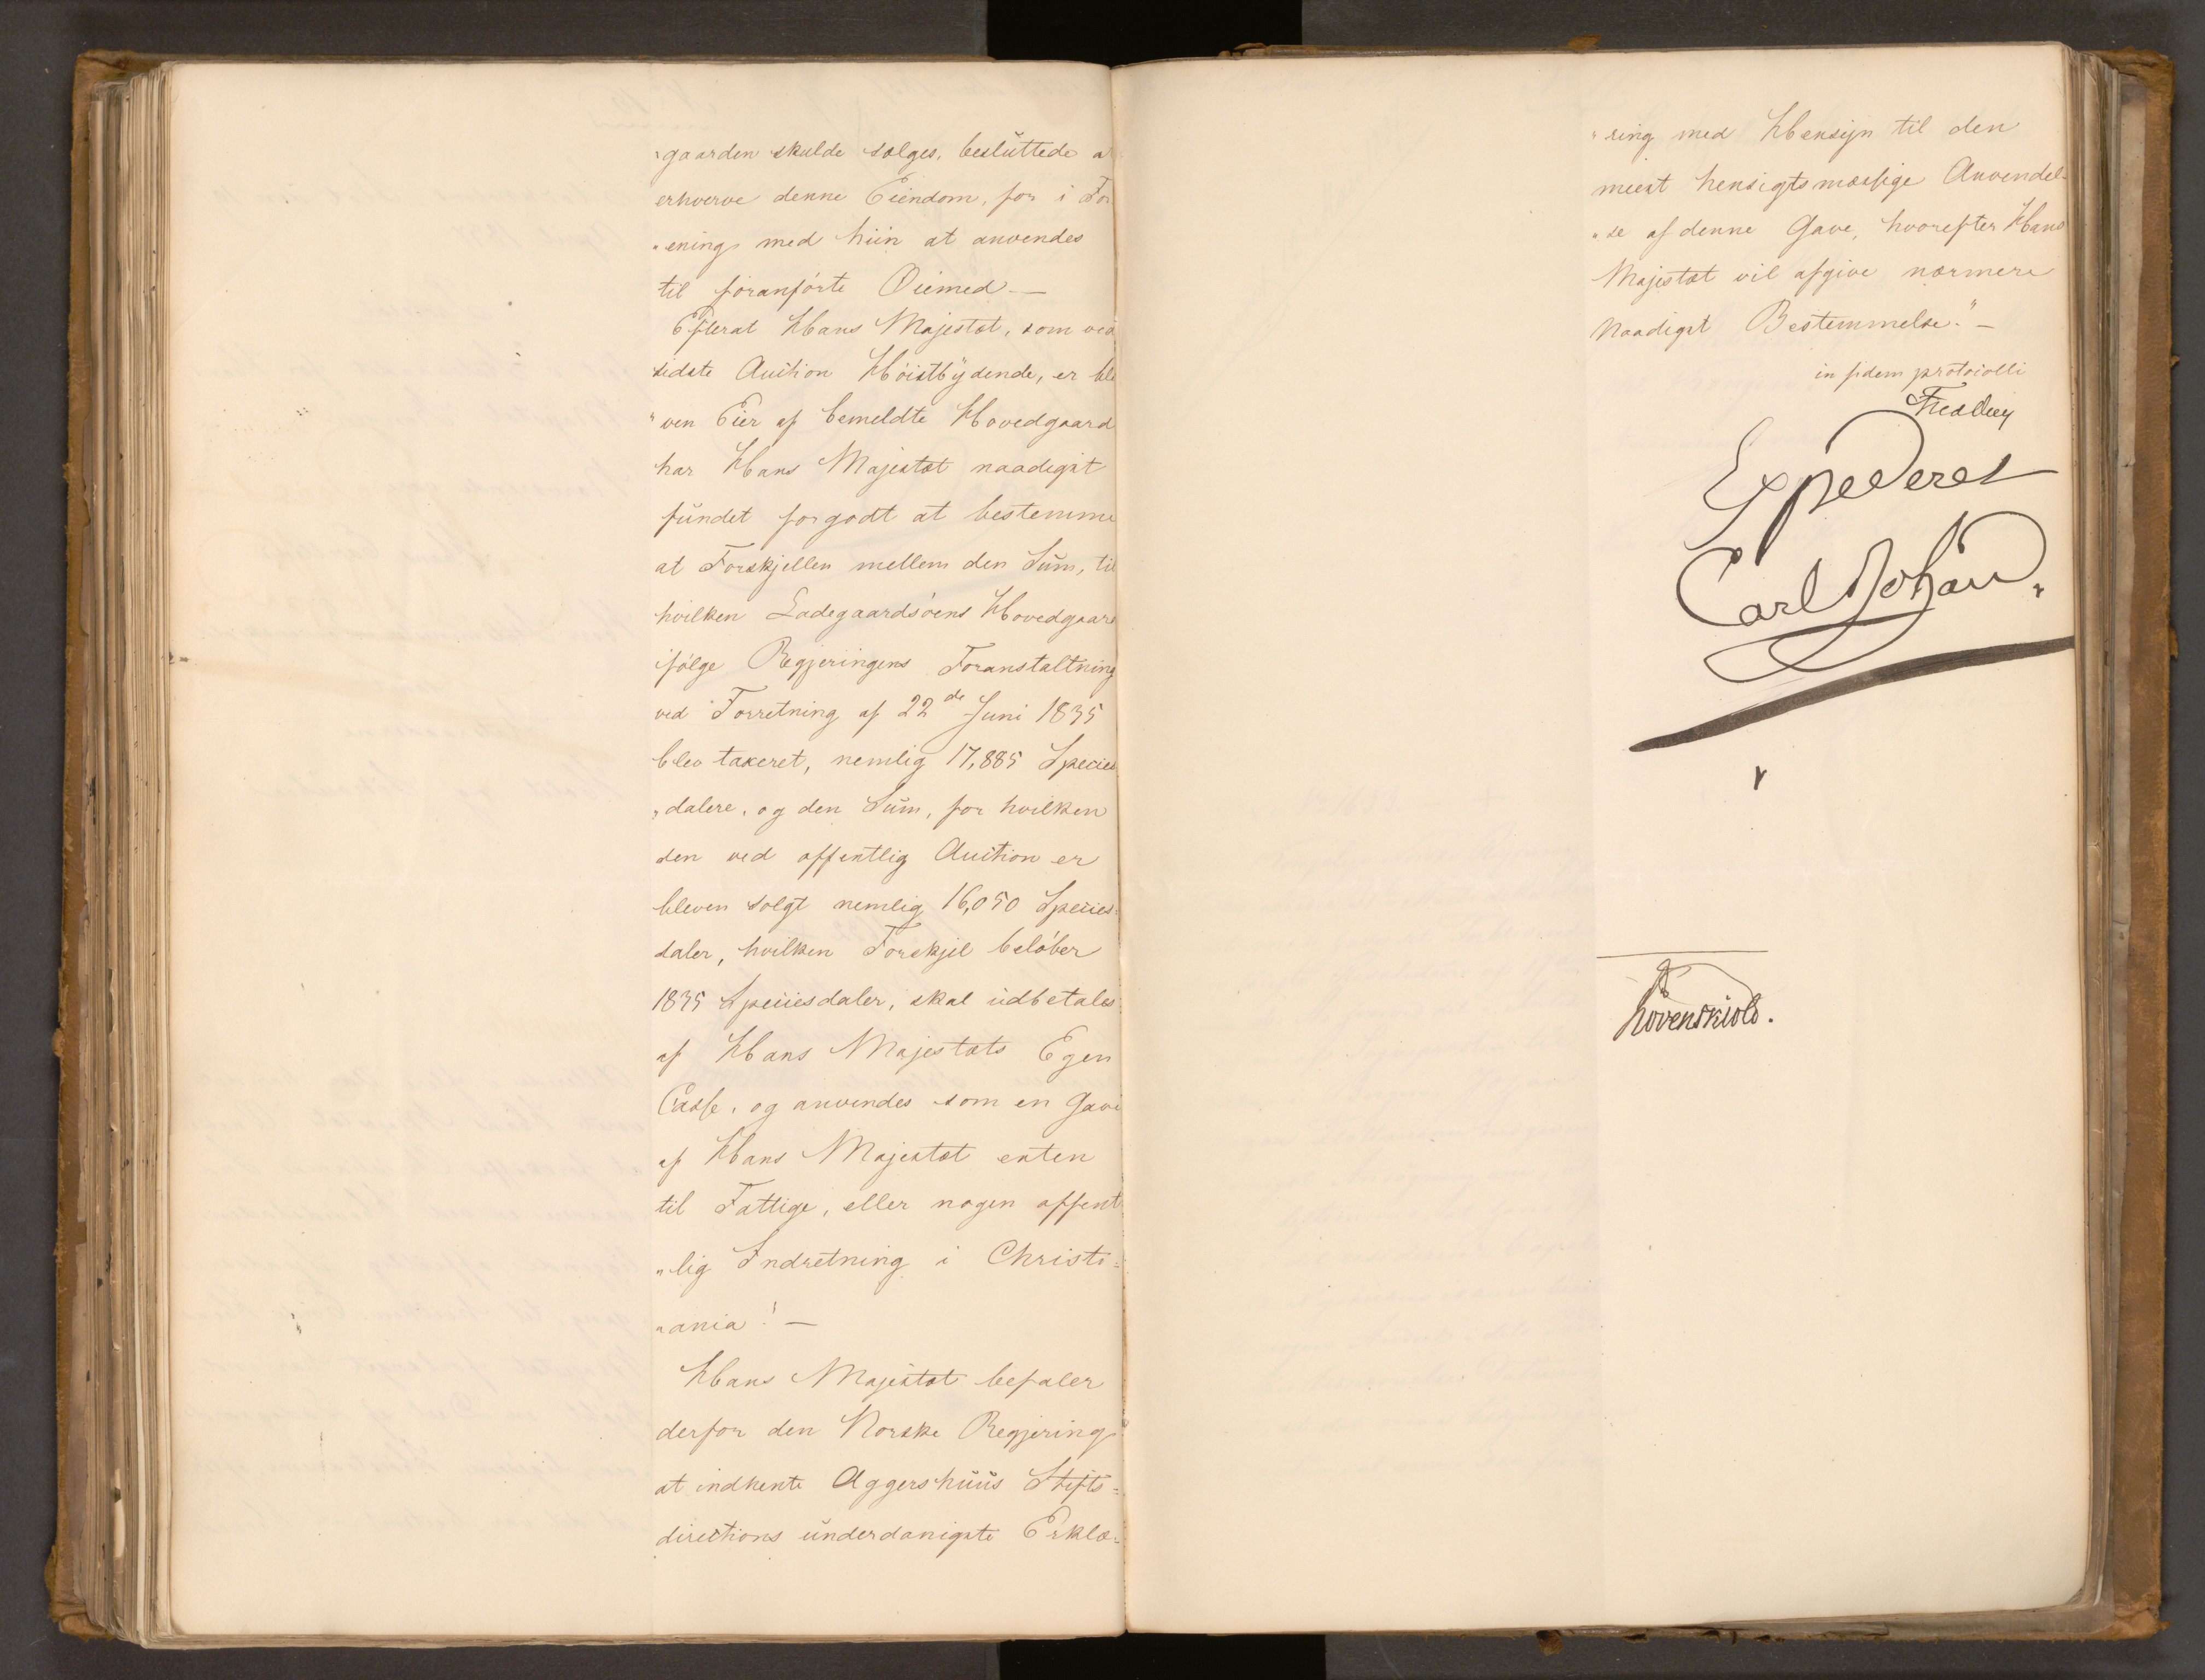 „gaarden skulde sælges, besluttede at
erhverve denne Eiendom, for i For
„ening med hiin at anvendes
til foranførte Øiemed —
Efterat Hans Majestæt, som ved
sidste Auction Høistbydende, er ble
„ven Eier af bemeldte Hovedgaard
har Hans Majestæt naadigst
fundet for godt at bestemme
at Forskjellen mellem den Sum, til
hvilken Ladegaardsøens Hovedgaard
ifølge Regjeringens Foranstaltning
ved Forretning af 22de Juni 1835
blev taxeret, nemlig 17,885 Species
„dalere, og den Sum, for hvilken
den ved offentlig Auction er
bleven solgt nemlig 16,050 Species=
daler, hvilken Forskjel beløber
1835 Speciesdaler, skal udbetales
af Hans Majestæts Egen
Casse, og anvendes som en Gave
af Hans Majestæt enten
til Fattige, eller nogen offent
„lig Indretning i Christi=
„ania! —
Hans Majestæt befaler
derfor den Norske Regjering
at indhente Aggershuus Stifts=
directions underdanigste Erklæ=
„ring med Hensyn til den
meest hensigtsmæssige Anvendel=
„se af denne Gave, hvorefter Hans
Majestæt vil afgive nærmere
Naadigst Bestemmelse." —
in fidem protocolli
Expederes
Carl Johan
Løvenskiold.